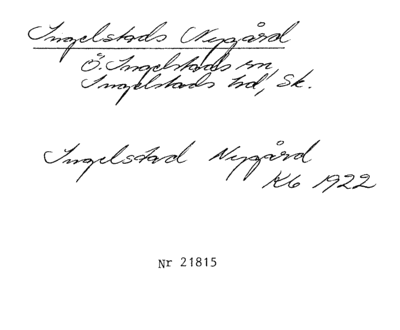 Ingelstads Nygård
Ö. Ingelstads sn,
Ingelstads hd, Sk.
Ingelstad Nygård
Kb 1922
Nr 21815